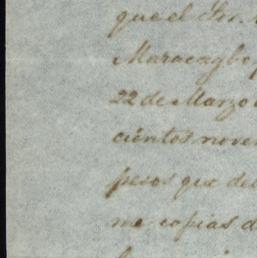 que el Sor.
Maracaybo
22 de Marzo
cientos nove
pesos que de
me copias d